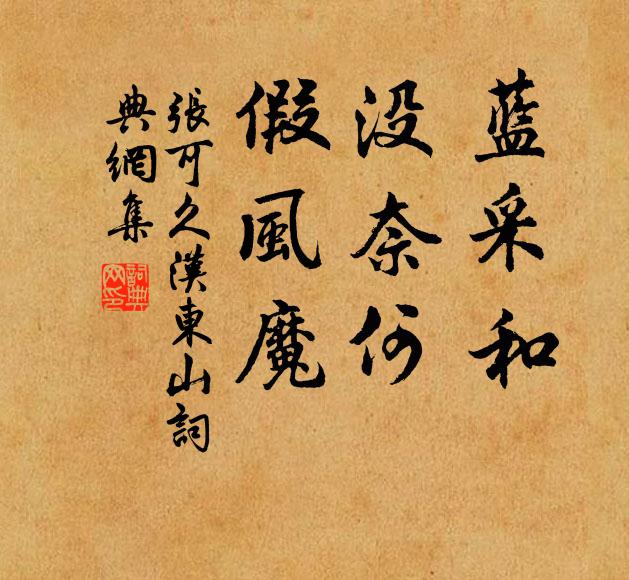 藍采和
没奈何
假風魔
張可久漢東山詞
典網集
詞典網印